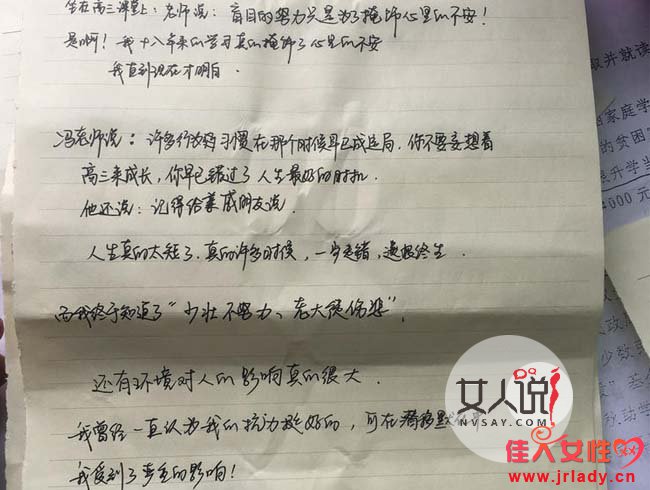 坐在高三课堂上：老师说：盲目的努力只是为了掩饰心里的不安！
是啊！我十八年来的学习真的掩饰了心里的不安
我直到现在才明白．
冯老师说：许多行为好习惯在那个时候早已成定局．你不要妄想着
高三来成长，你早已错过了人生最好的时机．
他还说：记得给亲戚朋友说．
人生真的太短了．真的许多时候，一步走错，遗恨终生．
而我终于知道了"少壮不努力、老大徒伤悲"．
还有环境对人的影响真的很大．
我曾经一直认为我的抗力挺好的，可在潜移默
我受到了严重的影响！
取并就读
家庭学
的贫困"
升学当
4000元
少数
助学
女人说！
NVSAY.COM
佳人女性网
www.jrlady.cn